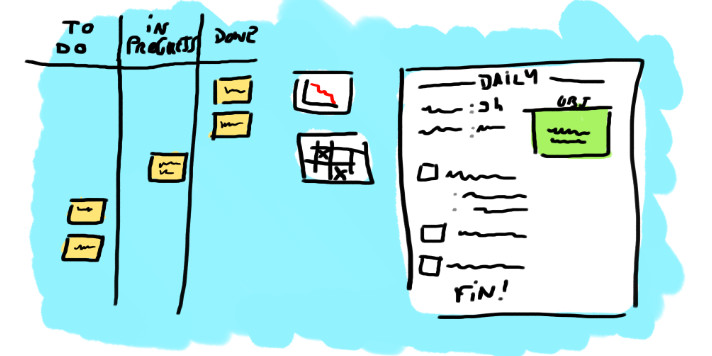 TO
DO
iN
PROGRESS
DONE
DAILY
: 9h
OBJ
FiN!